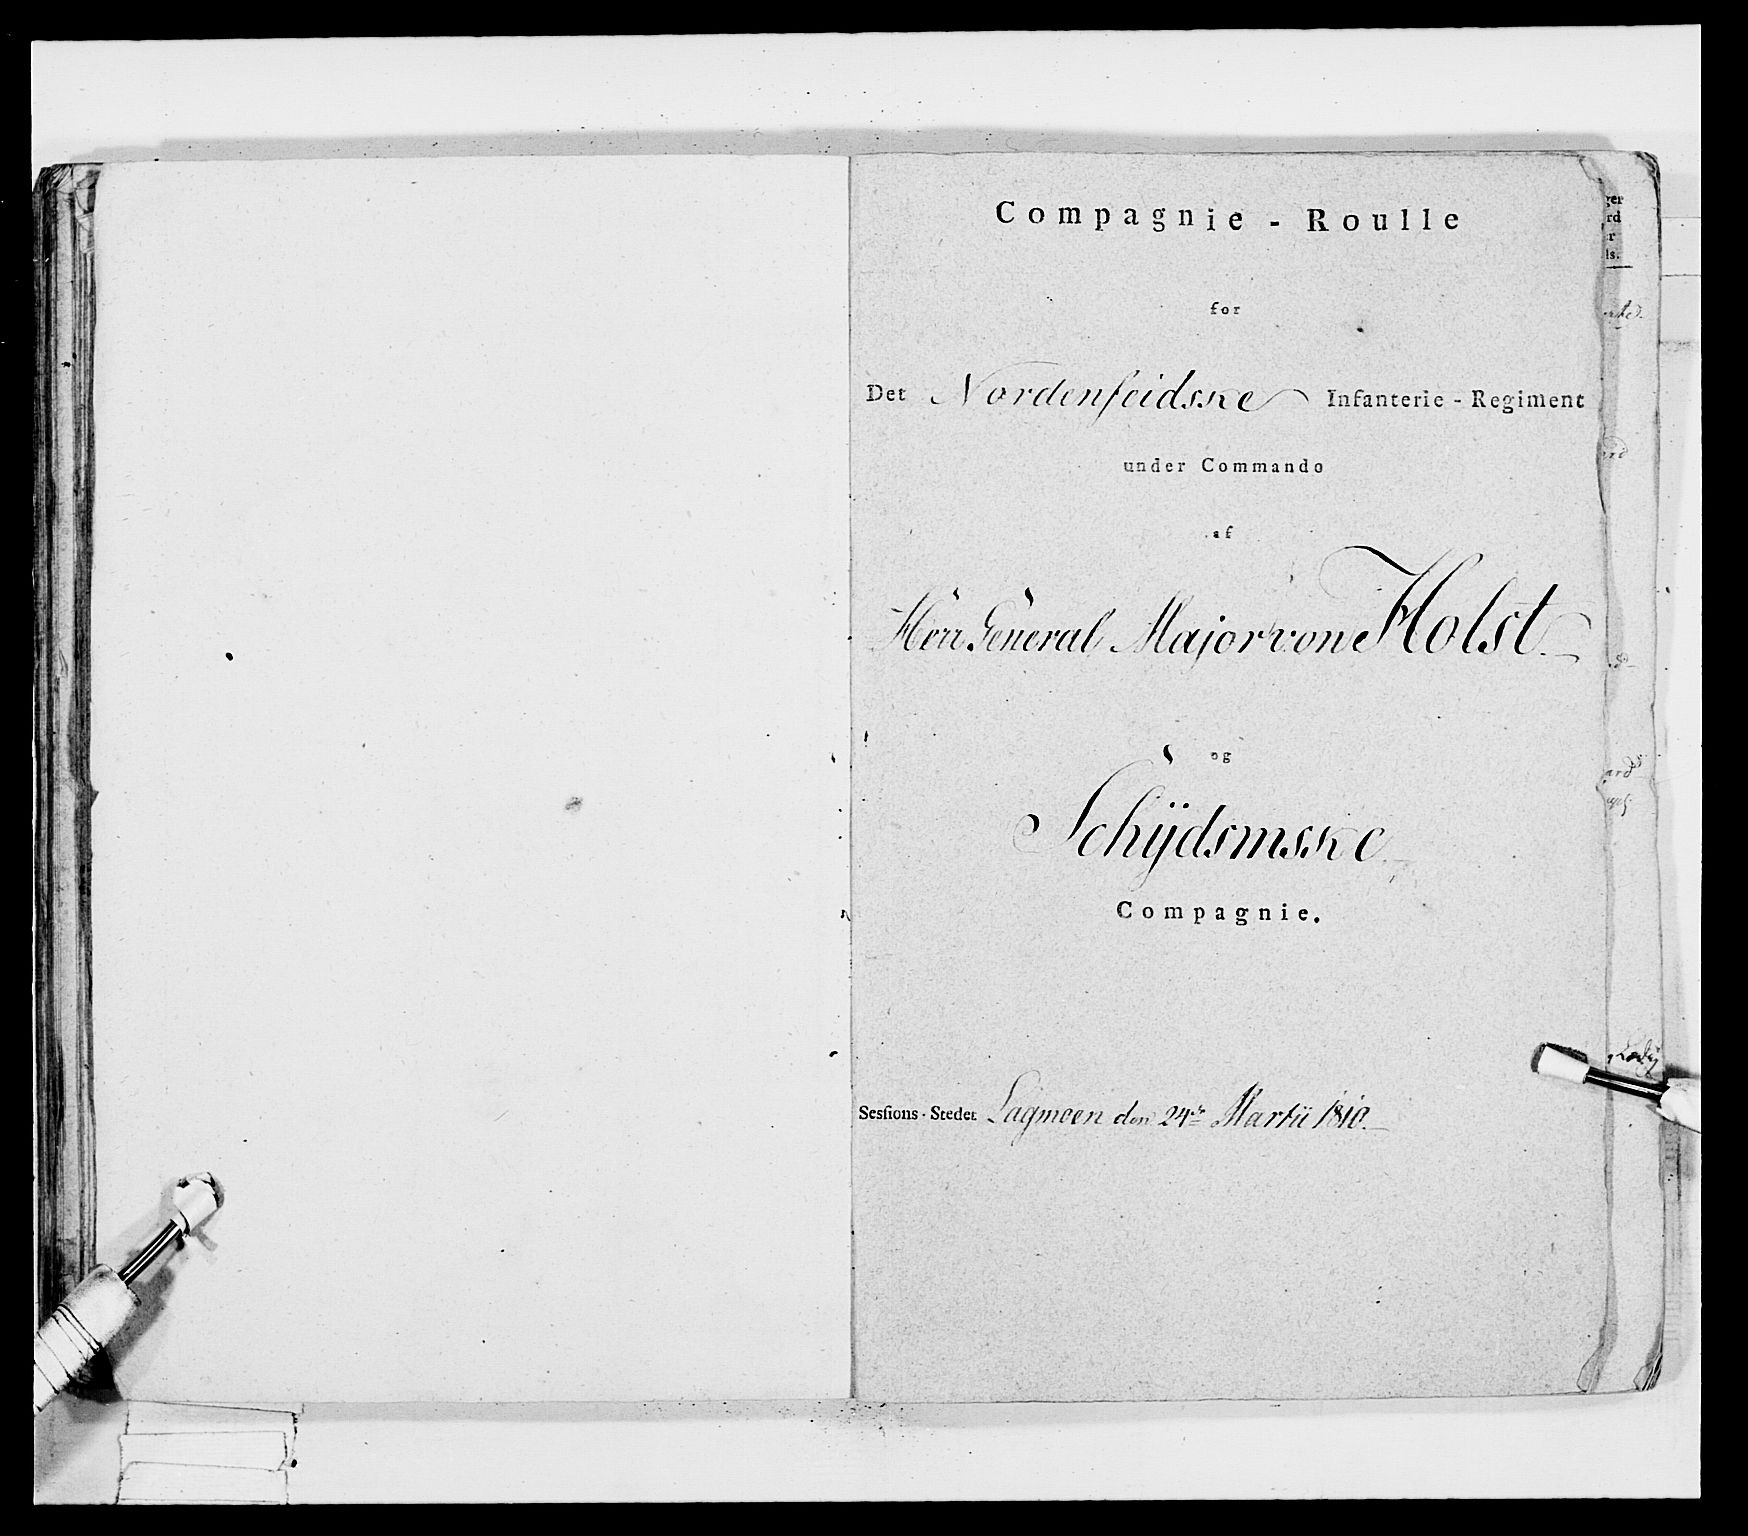 Compagnie - Roulle
for
Det Nordenfeidske Infanterie - Regiment
under Commando
af
Herr General Major von Holst.
og
Schÿdsmske
Compagnie.
Sessions-Stedet Lagmoen den 24de Martii 1810.